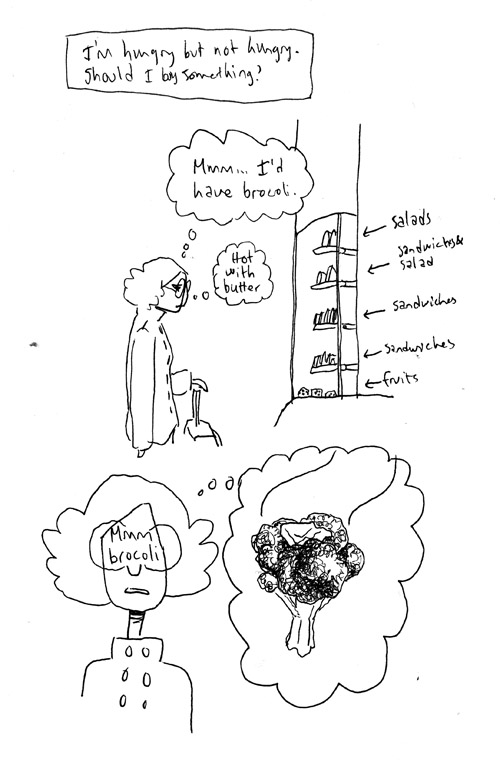 I'm hungry but not hungry.
Should I buy something?
Mmm... I'd
have brocoli.
Hot
with
butter
salads
sandwiches&
salad
sandwiches
sandwiches
fruits
Mmm
brocoli